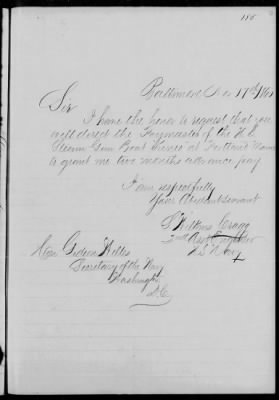 185
Baltimore Dec 17th 1861
Sir
I have the honor to request that you
will direct the Paymaster of the U.S.
Steam Gun Boat "Kineo" at Portland Maine
to grant me two months advance pay
I am respectfully
Your Obedient Servant
S Wilkins Cragg
2nd Asst Engineer
U.S. Navy
Hon Gideon Welles
Secretary of the Navy
Washington
D.C.